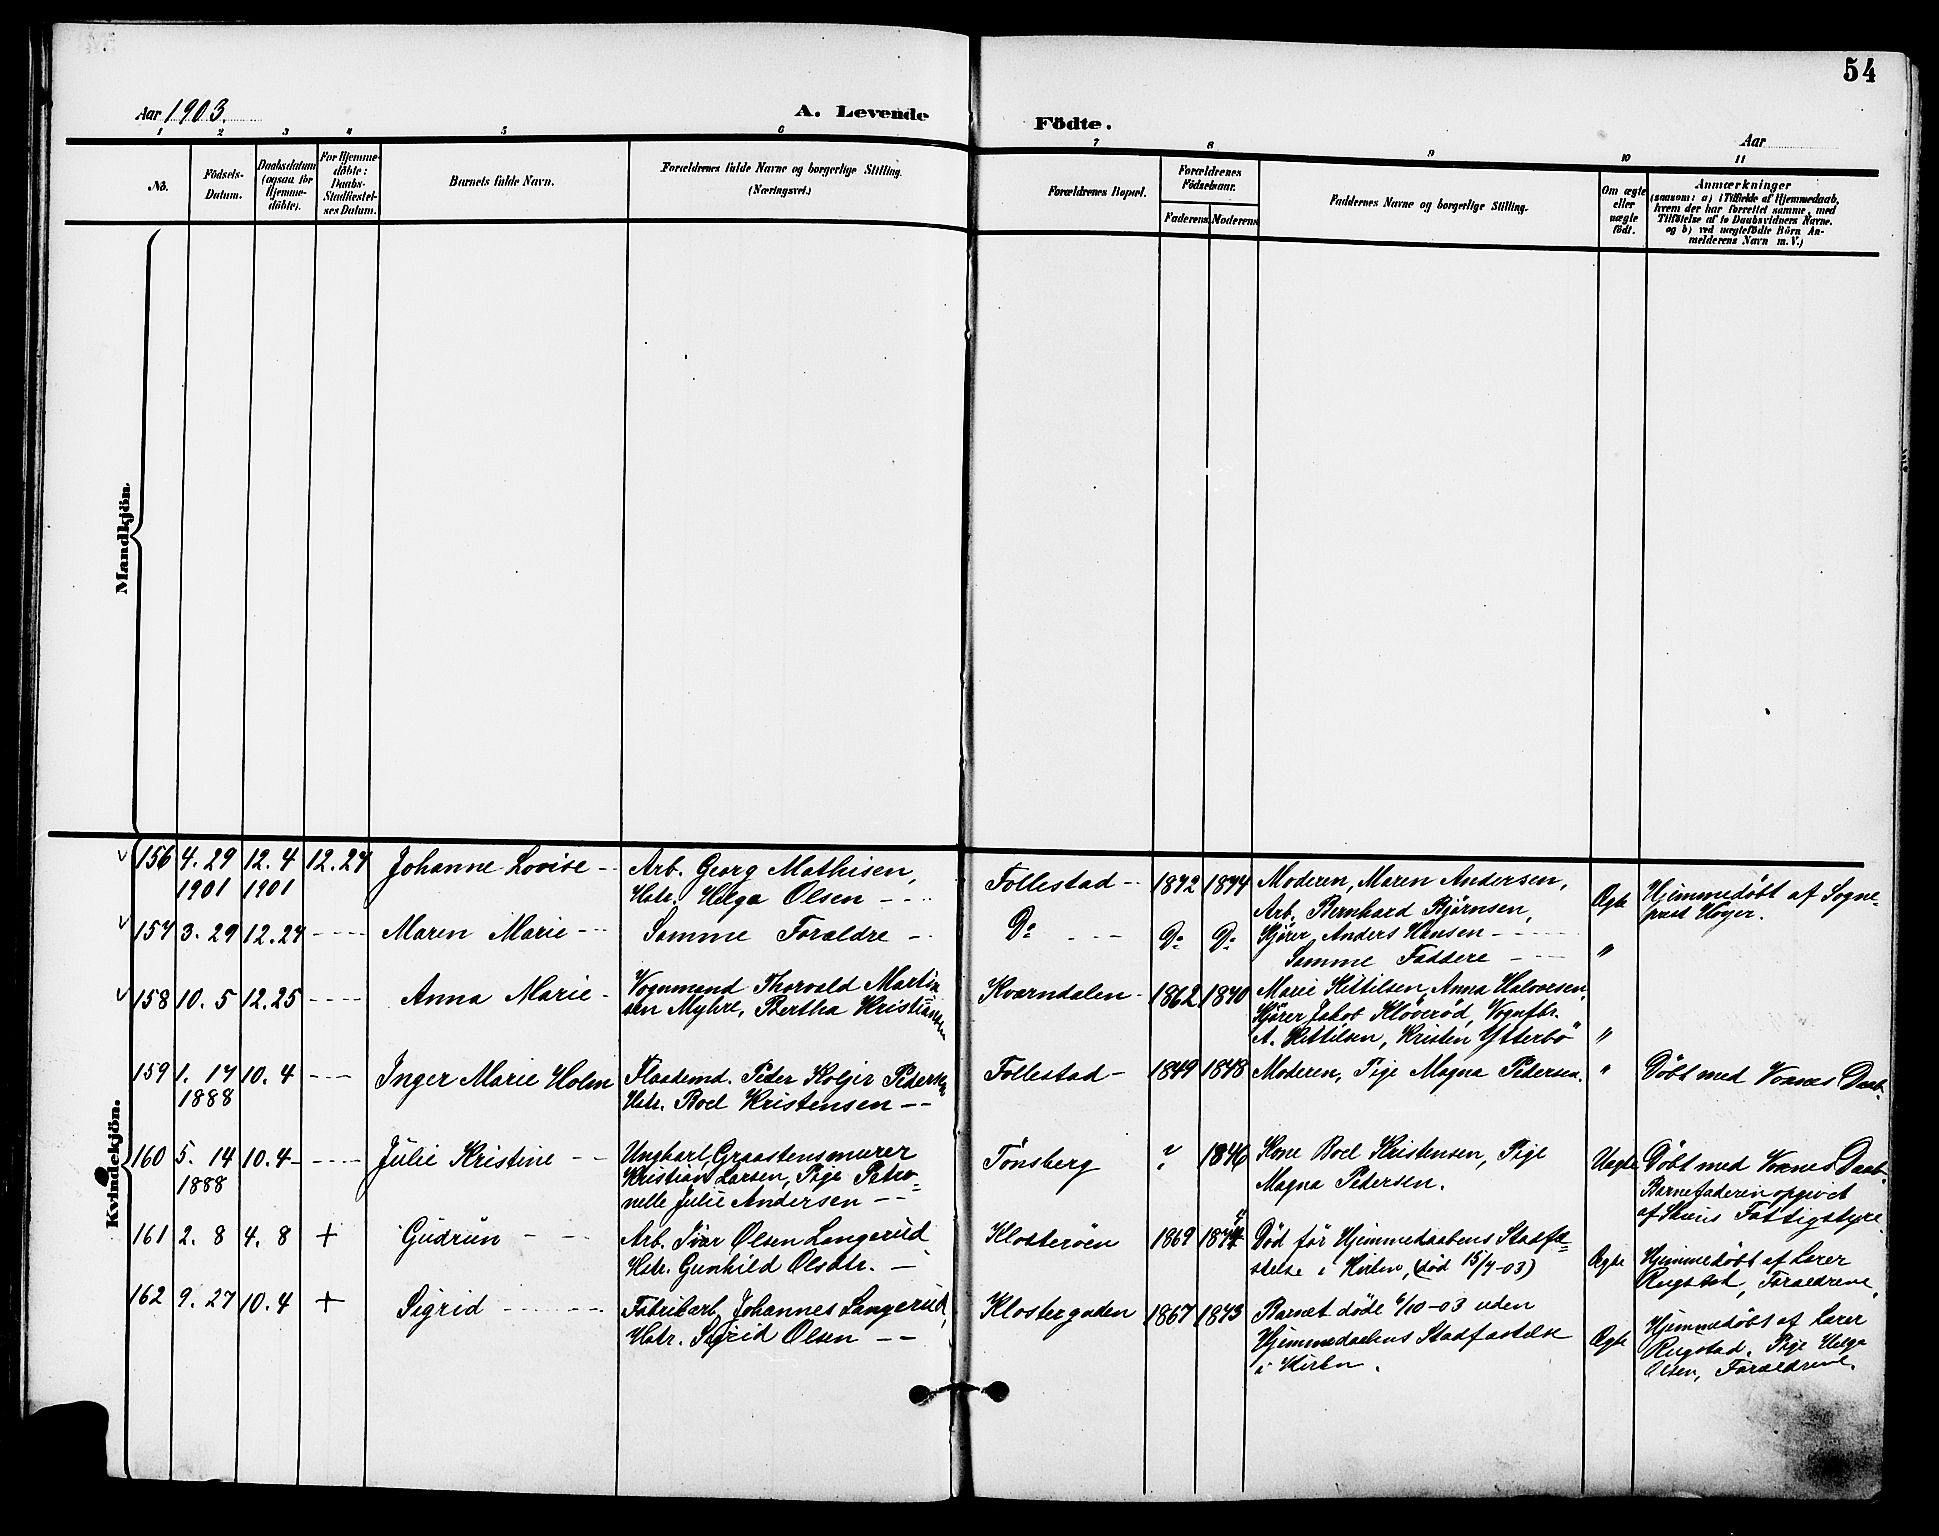 54
Aar 1903.
A. Levende
Födte.
Aar
1 2 3 4 5 6 7 8 9 10 11
No.
Födsels-
Datum.
Daabsdatum
(ogsaa for
Hjemme-
döbte).
For Hjemme-
döbte:
Daabs-
Stadfæstel-
ses Datum.
Barnets fulde Navn.
Forældrenes fulde Navne og borgerlige Stilling.
(Næringsvei.)
Forældrenes Bopæl.
Forældrenes
Födselsaar.
Faderens
Moderens
Faddernes Navne og borgerlige Stilling.
Om ægte
eller
uægte
födt.
Anmærkninger
(saasom: a) i Tilfælde af Hjemmedaab,
hvem der har forrettet samme, med
Tilföielse af to Daabsvidners Navne.
og b) ved uægtefödte Börn An-
melderens Navn m. V.)
Mandkjön.
Kvindekjön.
156 4. 29 12. 4 12. 27 Johanne Lovise
1901 1901
Arb. Georg Mathisen,
Hstr. Helga Olsen
Follestad 1872 1874
Moderen, Maren Andersen,
Arb. Bernhard Bjørnsen,
Kjører Anders Hansen
Ægte
Hjemmedøbt af Sogne-
prest Høyer.
157 3. 29 12. 27 Maren Marie
Samme Foraldre
Do Do Do
Samme Faddere
"
158 10. 5 12. 25 Anna Marie
Vognmand Thorvald Martin
sen Myhre, Bertha Kristiansen
Kværndalen 1862 1870
Marie Kittilsen, Anna Halvorsen,
Kjører Jakob Kløverød, Vognfbr.
A. Kittilsen, Kristen Ytterbö
"
159 1. 17 10. 4 Inger Marie Holm
1888
Flaademd. Peder Holger Pedersen
Hstr. Boel Kristensen
Follestad 1849 1848
Moderen, Pige Magna Pedersen.
"
Døbt med Voxnes Daab.
160 5. 14 10. 4 Julie Kristine
1888
Ungkarl, Graastensmurer
Kristian Larsen, Pige Petro-
nelle Julie Andersen
Tønsberg ? 1846
Kone Boel Kristensen, Pige
Magna Pedersen.
Uægte
Døbt med Voxnes Daab.
Barnefaderen opgivet
af Skiens Fattigstyre.
161 2. 8 4. 8 + Gudrun
Arb. Ivar Olsen Langerud
Hstr. Gunhild Olsdtr.
Klosterøen 1869
Død før Hjemmedaabens Stadfæ-
stelse i Kirken, (død 15/4-03)
Ægte
Hjemmedøbt af Lærer
Rugstad, Foraeldrene.
162 9. 27 10. 4 + Sigrid
Fabrikarb. Johannes Langerud,
Hstr. Sigrid Olsen
Klostergaden 1867 1873
Barnet døde 6/10-03 uden
Hjemmedaabens Stadfæstelse
i Kirken.
Ægte
Hjemmedøbt af Lærer
Rugstad. Pige Helga
Olsen, Foraeldrene.